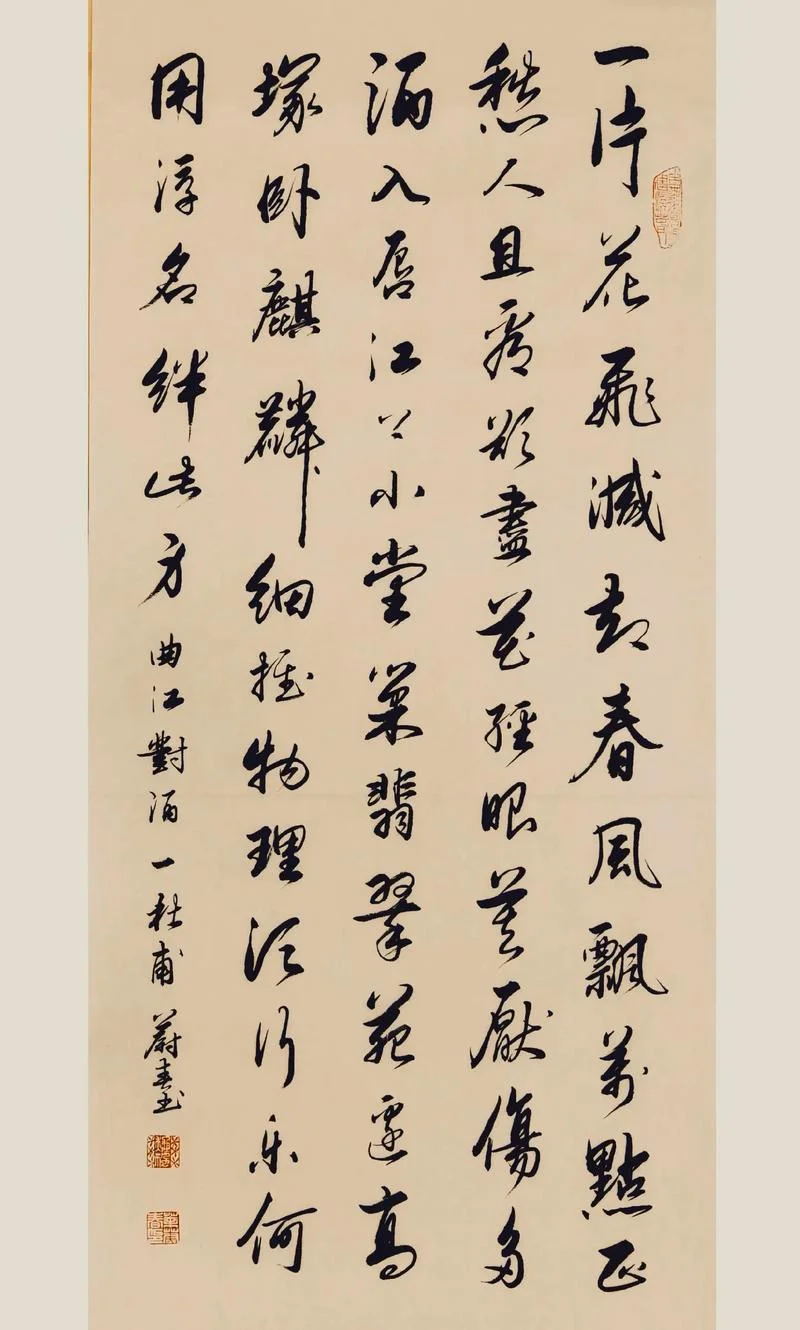 一片花飛減却春風飄萬點正
愁人且看欲盡花經眼莫厭傷多
酒入唇江上小堂巢翡翠苑邊高
塚卧麒麟細推物理須行乐何
用浮名絆此身 曲江對酒一杜甫 蔚春書